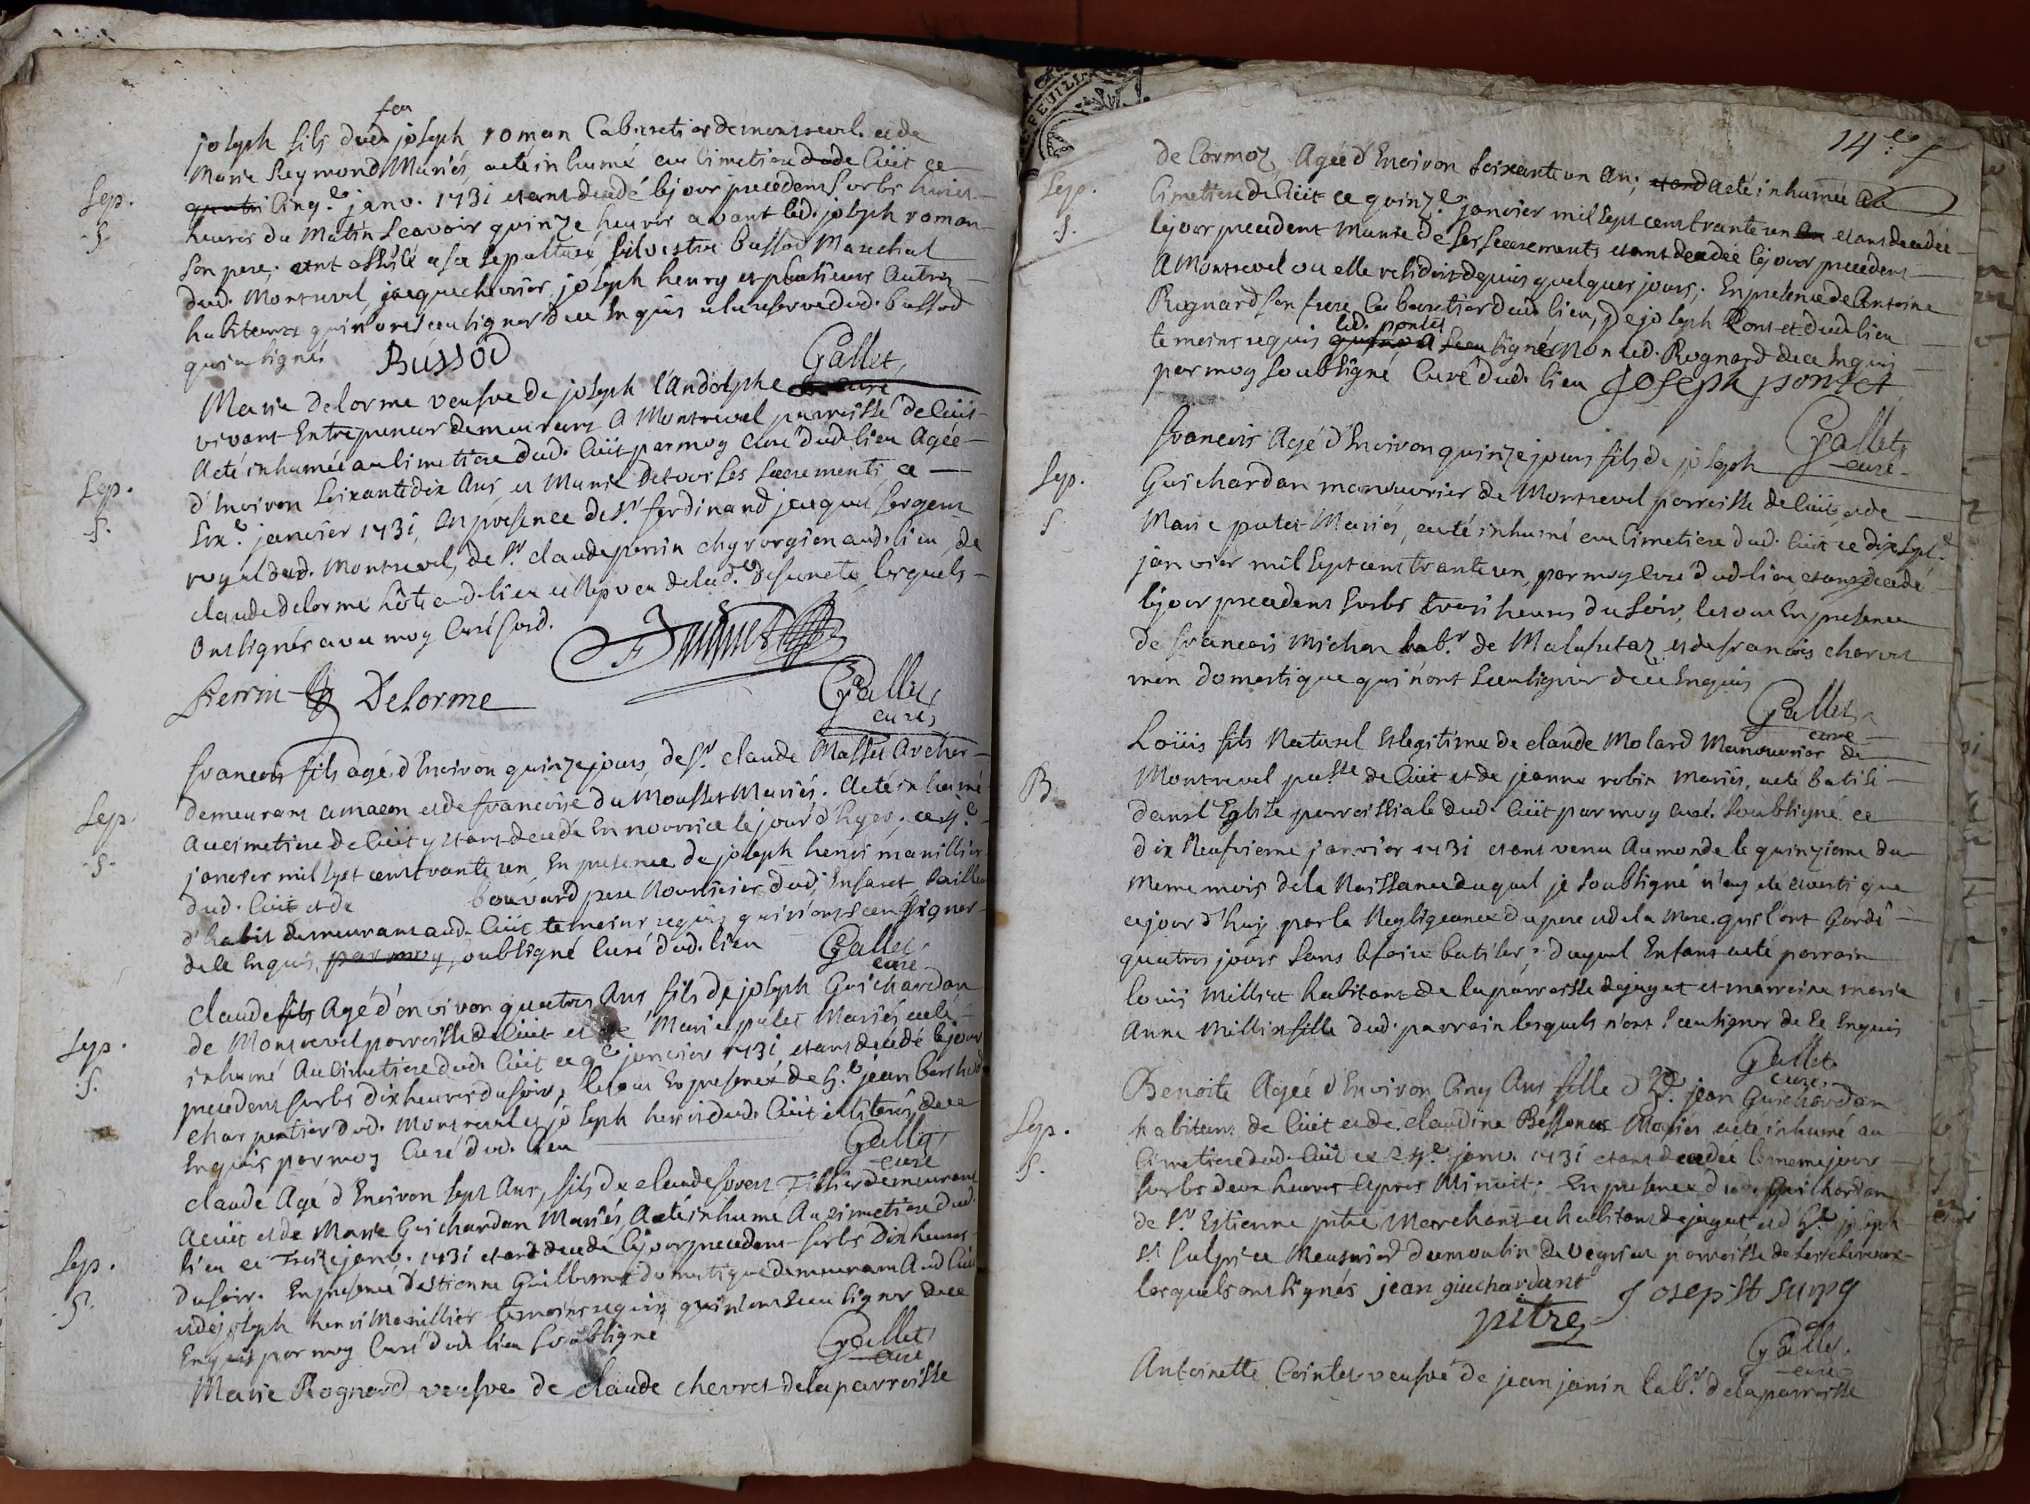 feu
joseph fils dud. joseph roman Cabaretier de montrevel et de
Marie Reymond Mariés, a eté inhumé au Cimetiere de Cüit ce
Sep. S.
cinq.e janv. 1731 etant decedé le jour precedent sur les huict
heures du Matin Scavoir quinze heures avant led. joseph roman
son pere; ont assisté a sa sepulture, silvestre bussod Marchal
dud. Montrevel, jacque chevrier, joseph henry et plusieurs autres
habitants qui n'ont sceu signer de ce Enquis a la reserve dud. bussod
qui a signé. Büssod Gallet curé
Marie delorme veufve de joseph l'Andolphe
vivant Entrepreneur demeurant A Montrevel parroisse de Cüit
A eté inhumée au Cimetiere dud. Cüit par moy Curé dud. lieu Agée
Sep. S.
d'Environ Soixante dix Ans, et Munie De tous les Sacrements, ce
Six.e janvier 1731, En presence de S.r ferdinand jacquet sergent
royal dud. Montrevel, de S.r claude perrin chyrorgien aud. lieu, de
claude delorme hôte aud. lieu et Nepveu de lad. Defuncte, lesquels
Ont signés avec moy Curé susd.
Perrin Delorme Gallet curé
francois fils agé d'Environ quinze jours, de S.r claude Masset Archer
demeurant a macon et de francoise du Mousset Mariés. A eté inhumé
Sep. S.
Au cimetiere de Cüit y etant decedé En nourrice le jour d'hyer, ce
janvier mil sept cent trante un, En presence de joseph henri manillier
dud. Cüit et de bouvard pere Nourricier dud. Enfant, tailleur
d'habit demeurant aud. Cüit, temoins requis qui n'ont sceu signer
de ce Enquis, par moy soubsigné Curé dud. lieu Gallet curé
claude fils Agé d'environ quatres Ans fils de joseph Guichardan
de Montrevel parroisse de Cüit et de Marie putet Mariés a eté
Sep. S.
inhumé Au cimetiere dud. Cüit ce 9.e janvier 1731 etant decedé le jour
precedent sur les dix heures du soir, le tout En presence de
charpentier dud. Montrevel et joseph henri dud. Cüit illiterés de ce
Enquis par moy Curé dud. lieu Gallet curé
claude Agé d'Environ sept Ans, fils de claude Tissier demeurant
A cüit et de Marie Guichardan Mariés, A eté inhumé Au cimetiere dud.
Sep. S.
lieu ce Treize janv. 1731 etant decedé le jour precedent sur les Dix heures
du soir. En presence d'Estienne Guillermet domestique demeurant Aud. Cüit
et de joseph henri Manillier temoins requis qui n'ont sceu signer de ce
Enquis par moy Curé dud. lieu soubsigné Gallet curé
Marie Rognard veufve de claude chevret de la parroisse
14.e
de Cormoz, Agée d'Environ Soixante un an; a eté inhumée au
Sep. S.
Cimetiere de Cüit ce quinz.e janvier mil sept cent trante un etant decedée
le jour precedent munie de ses sacrements etant decedée le jour precedent
A Montrevel ou elle residoit depuis quelques jours; En presence de Antoine
Rognard son frere Cabaretier dud. lieu, de joseph Pontet dud. lieu
led. pontet
temoins requis signé Non led. Rognard de ce Enquis
par moy soubsigné Curé dud. lieu Joseph pontet
Gallet curé
francois Agé d'Environ quinze jours fils de joseph
Sep. S.
Guichardan manouvrier de Montrevel parroisse de Cüit, et de
Marie putet Mariés, a eté inhumé au Cimetiere dud. Cüit ce dix sept.e
janvier mil sept cent trante un, par moy Curé dud. lieu, etant decedé
le jour precedent sur les trois heures du soir, le tout En presence
de francois Michon lab.r de Malafretaz et de francois charvet
mon domestique qui n'ont sceu signer de ce Enquis
Gallet curé
Loüis fils Naturel et legitime de claude Molard Manouvrier de
B.
Montrevel pa.sse de Cüit et de jeanne robin Mariés, a eté batisé
dans l'Eglise parroissiale dud. Cüit par moy curé soubsigné ce
dix Neufvieme janvier 1731 etant venu Au monde le quinzieme du
meme mois de la Naissance duquel je soubsigné n'ay eté averti que
ce jour d'huy par la Negligeance du pere et de la Mere qui l'ont Gardé
quatres jours sans le faire batiser, duquel Enfant a eté parrain
louis Millet habitant de la parroisse de jayat et marreine marie
Anne Millin fille dud. parrain lesquels n'ont sceu signer de ce Enquis
Gallet curé
Benoite Agée d'Environ Cinq Ans fille d' jean Guichardan
Sep. S.
habitant de Cüit et de claudine Bessonat Mariés a eté inhumé au
Cimetiere dud. Cüit ce 24.e janv. 1731 etant decedee le meme jour
sur les deux heures Apres Minuit; En presence dud. Guichardan
de S.r Estienne pitre Marchant et habitant de jayat, et d' joseph
st sulpice Meusnier du moulin de parroisse de
lesquels ont signés jean guichardant Joseph st sulpy
pitre Gallet curé
Antoinette Cointet veufve de jean janin lab.r de la parroisse